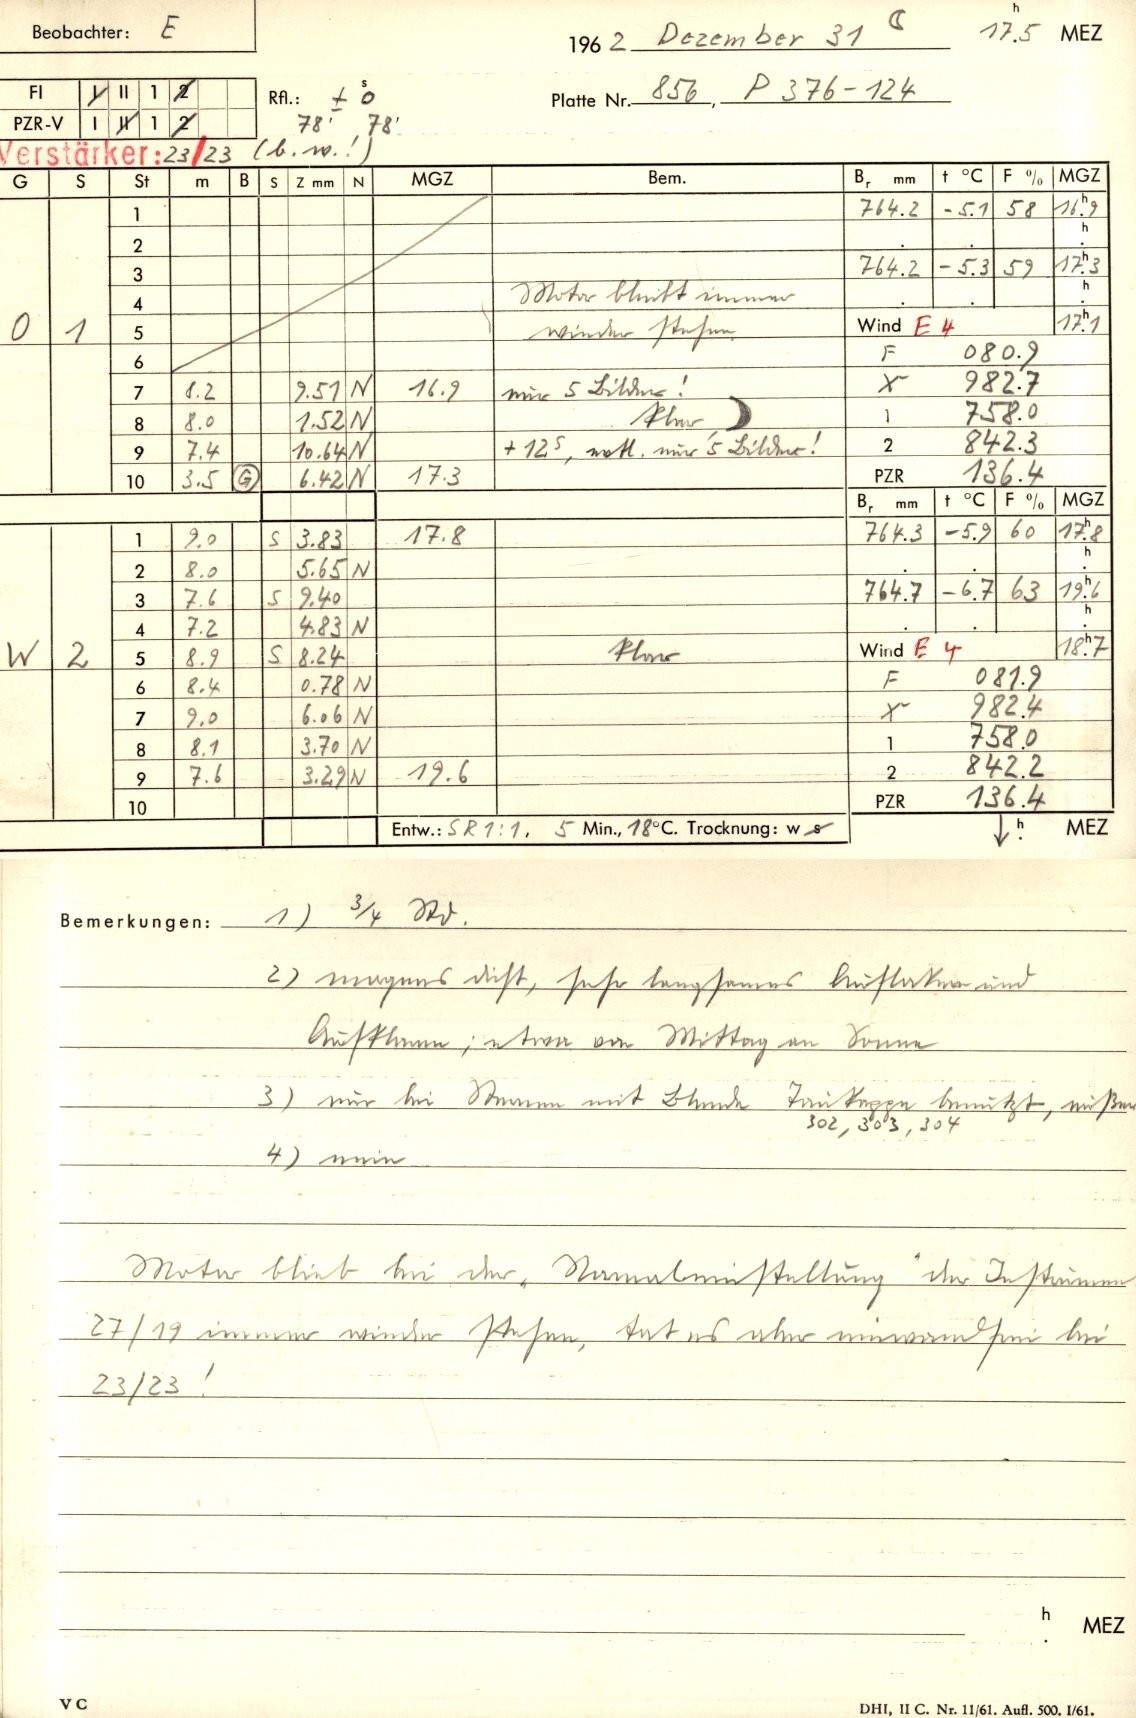 Beobachter: E
1962 Dezember 31 ☾ 17.5 h MEZ
FI I II 1 2
Rfl.: ± 0 s
78' , 78'
Platte Nr. 856, P 376-124
PZR-V I II 1 2
Verstärker: 23/23 (b. w.!)
G S St m B S Z mm N MGZ Bem. Br mm t °C F % MGZ
1 764.2 -5.1 58 16.9 h
2 . . h .
3 764.2 -5.3 59 17.3 h
4 Motor bleibt immer . . h .
O 1 5 wieder stehen Wind E 4 17.1 h
6 F 080.9
7 8.2 9.51 N 16.9 nur 5 Bilder! X 982.7
8 8.0 1.52 N klar, ☽ 1 758.0
9 7.4 10.64 N + 12 s, evtl. nur 5 Bilder! 2 842.3
10 3.5 G 6.42 N 17.3 PZR 136.4
Br mm t °C F % MGZ
1 9.0 S 3.83 17.8 764.3 -5.9 60 17.8 h
2 8.0 5.65 N . . h .
3 7.6 S 9.40 764.7 -6.7 63 19.6 h
4 7.2 4.83 N . . h .
W 2 5 8.9 S 8.24 klar Wind E 4 18.7 h
6 8.4 0.78 N F 081.9
7 9.0 6.06 N X 982.4
8 8.1 3.70 N 1 758.0
9 7.6 3.29 N 19.6 2 842.2
10 PZR 136.4
Entw.: SR 1:1, 5 Min., 18°C. Trocknung: w s ↓ h . MEZ
Bemerkungen: 1) 3/4 Std.
2) morgens dicht, sehr langsames Auflockern und
Aufklaren; etwa von Mittag an Sonne
3) nur bei Sternen mit Blende Taukappe benutzt, außer
302, 303, 304
4) nein
Motor blieb bei der „Normaleinstellung" der Instrumente
27/19 immer wieder stehen, tat es aber einwandfrei bei
23/23!
h . MEZ
V C
DHI, II C. Nr. 11/61. Aufl. 500. I/61.